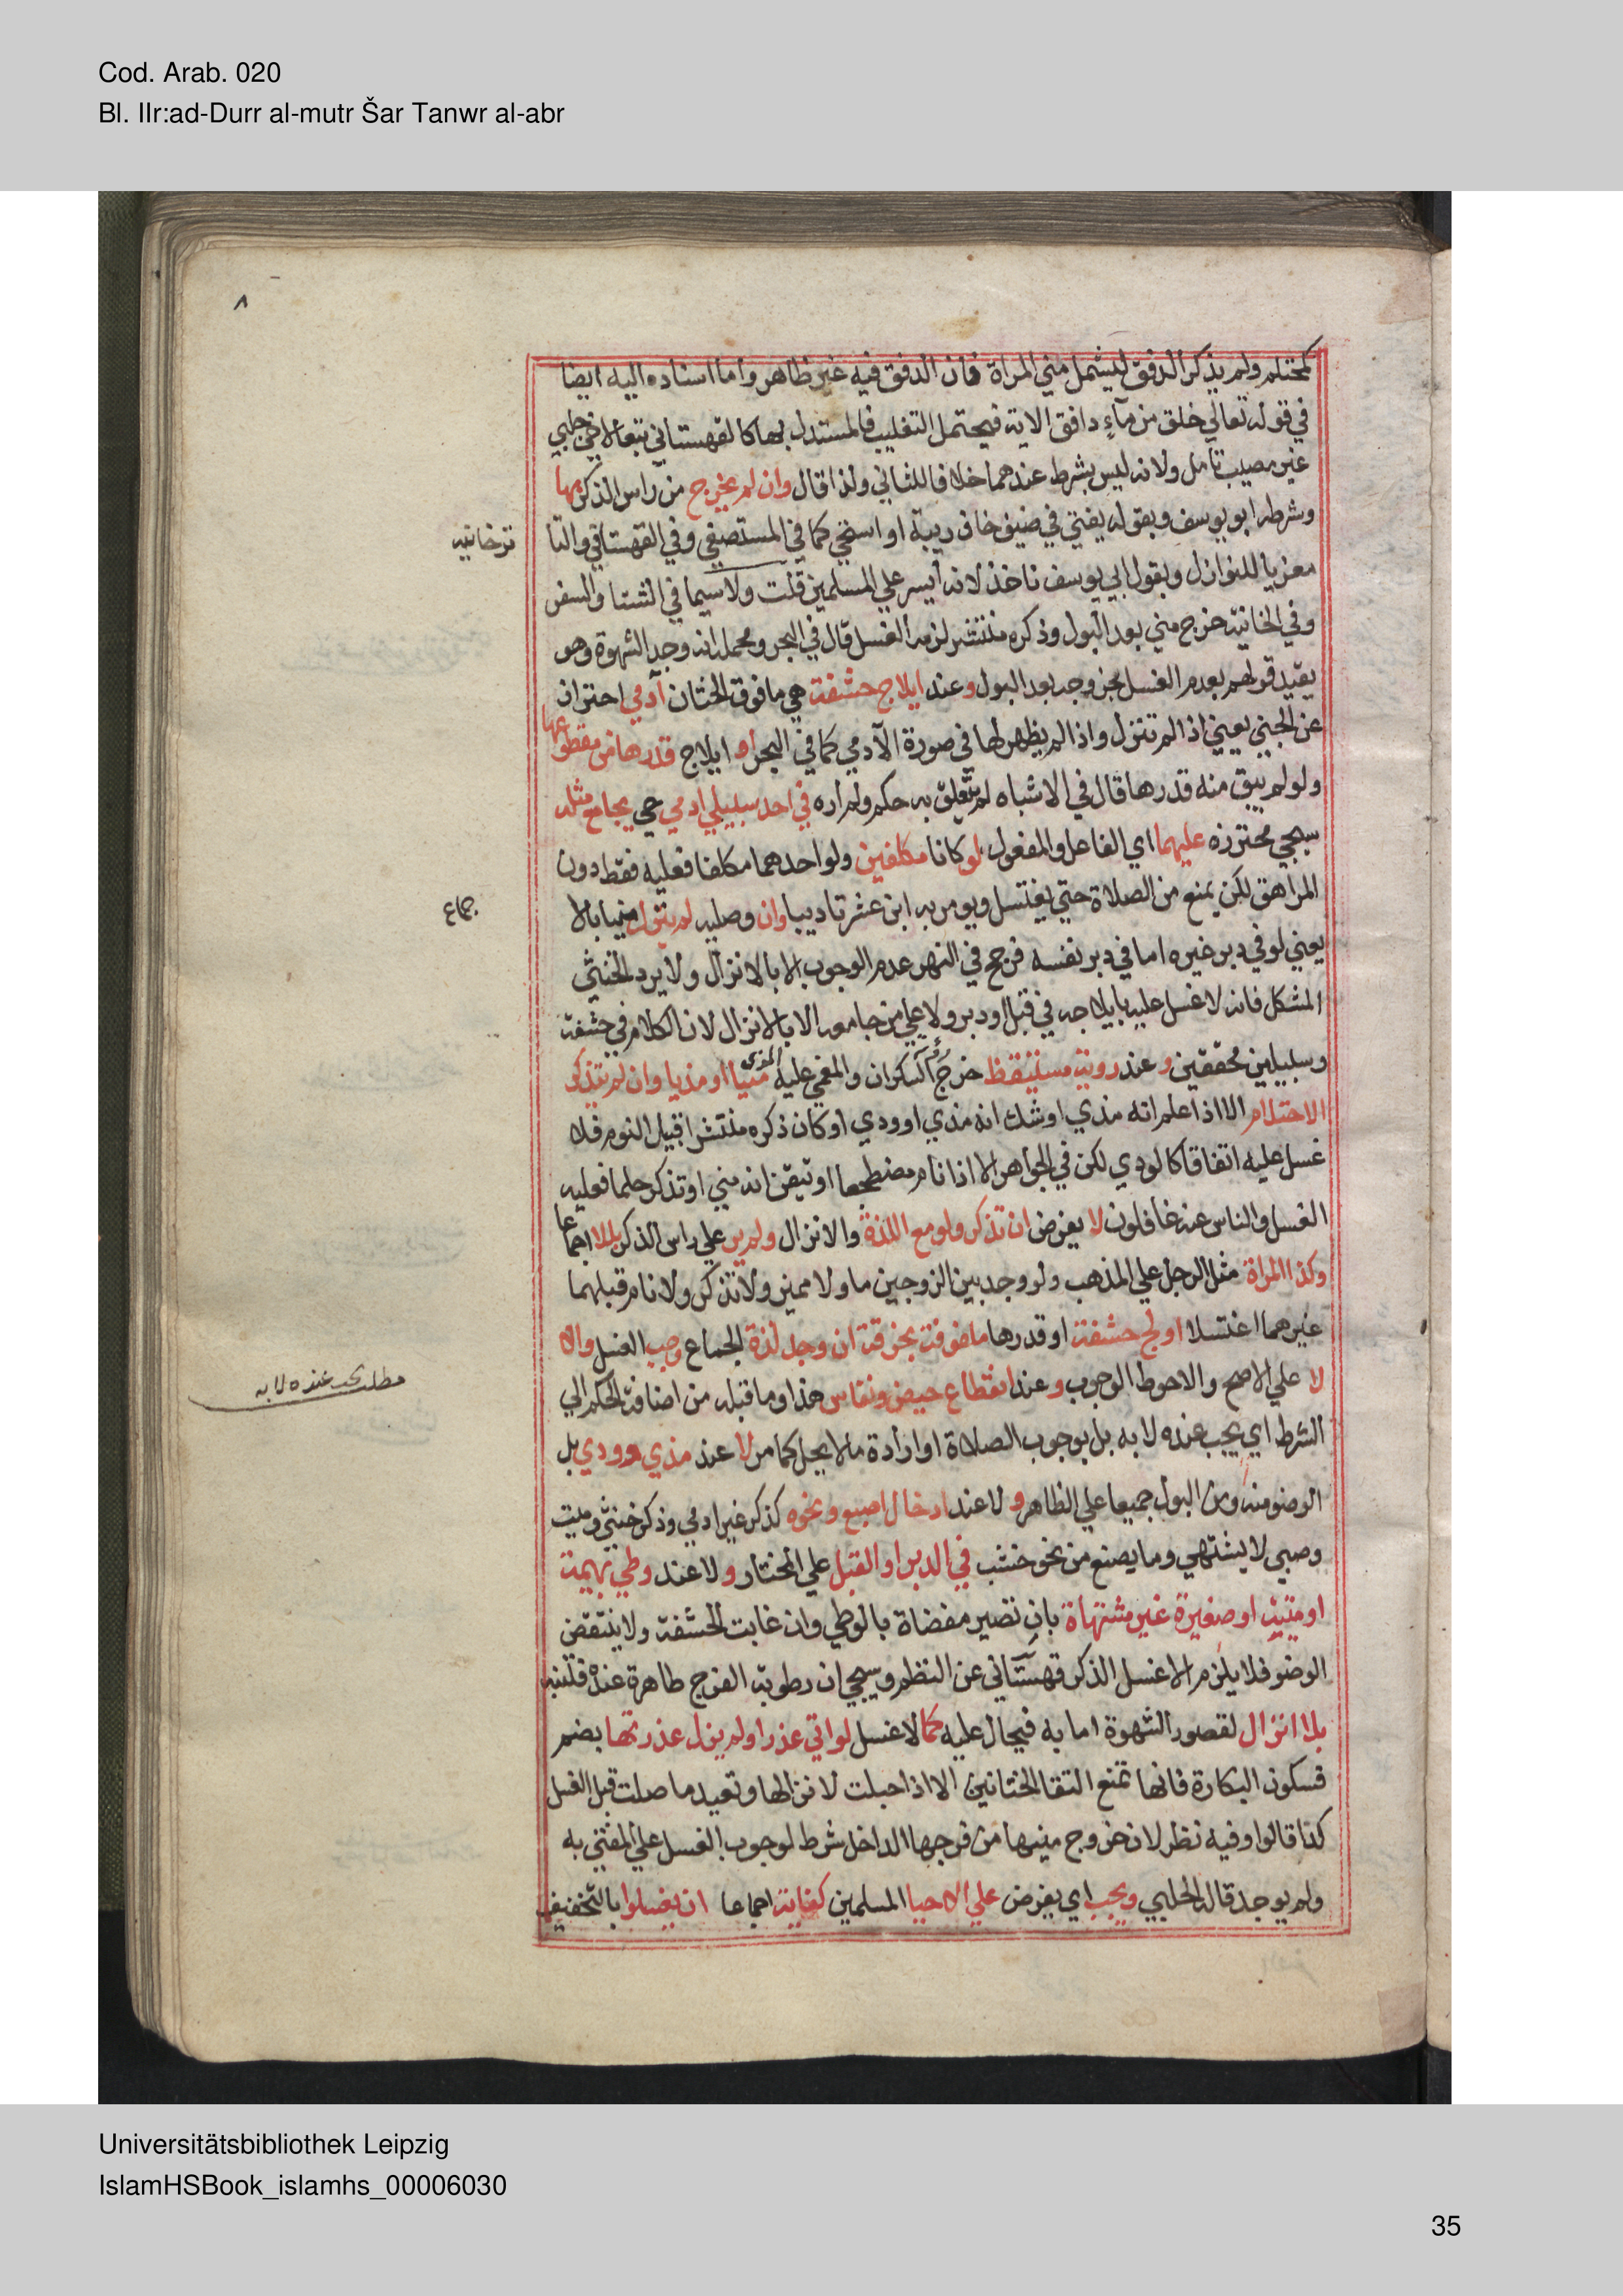 Cod. Arab. 020
Bl. IIr:ad-Durr al-mutr Šar Tanwr al-abr
٨
كمحتلم ولم يذكر الدفق ليشمل مني المراة فان الدفق فيه غير ظاهر واما اسناده اليه ايضا
في قوله تعالي خلق من مآءٍ دافق الاية فيحتمل التغليب فالمستدل بها كالقهستاني تبعا لاخي جلبي
غير مصيب تامل ولانه ليس بشرط عندهما خلافا للثاني ولذا قال وان لم يخرج من راس الذكر بها
وشرطه ابو يوسف وبقوله يفتي في ضيف خاف ريبة او استحي كما في المستصفي وفي القهستاني والتا
ترخانيه
معزيا للنوازل وبقول ابي يوسف ناخذ لانه أيسر علي المسلمين قلت ولاسيما في الشتا والسفر
وفي الخانية خرج مني بعد البول وذكره منتشر لزمه الغسل قال في البحر ومحمله انه وجد الشهوة وهو
يقيد قولهم بعدم الغسل بخروجه بعد البول وعند ايلاج حشفة هي ما فوق الختان آدمي احتراز
عن الجني يعني اذا لم تنزل واذا لم يظهر لها في صورة الآدمي كما في البحر او ايلاج قدرها من مقطوعها
ولو لم يبق منه قدرها قال في الاشباه لم يتعلق به حكم ولم اره في احد سبيلي ادمي حي يجامع مثله
سيجي محترزه عليهما اي الفاعل والمفعول لو كانا مكلفين ولو احدهما مكلفا فعليه فقط دون
المراهق لكن يمنع من الصلاة حتي يغتسل ويومر به ابن عشر تاديبا وان وصليه لم ينزل منيا بالا
جماع
يعني لو في دبر غيره اما في دبر نفسه فرجح في النهر عدم الوجوب الا بالانزال ولا يرد الخنثي
المشكل فانه لا غسل عليه بايلاجه في قبل او دبر ولا علي من جامعه الا بالانزال لان الكلام في حشفة
وسبيلين محققين وعند روية مستيقظ خرج السكران والمغمي عليه المذي منيا او مذيا وان لم يتذكر
الاحتلام الا اذا علم انه مذي او شك انه مذي او ودي او كان ذكره منتشرا قبيل النوم فلا
غسل عليه اتفاقا كالودي لكن في الجواهر الا اذا نام مضطجعا او تيقن انه مني او تذكر حلما فعليه
الغسل والناس عنه غافلون لا يفرض ان تذكر ولو مع اللذة والانزال ولم ير علي راس الذكر بللا اجماعا
وكذا المراة مثل الرجل علي المذهب ولو وجد بين الزوجين ما ولا مميز ولا تذكر ولا نام قبلهما
غيرهما اغتسلا اولج حشفة او قدرها ملفوفة بخرقة ان وجد لذة الجماع وجب الغسل والا
لا علي الاصح والاحوط الوجوب وعند انقطاع حيض ونفاس هذا وما قبله من اضافة الحكم الي
مطلب يجب عنده لا به
الشرط اي يجب عنده لا به بل بوجوب الصلاة او ارادة ما لا يحل كما مر لا عند مذي وودي بل
الوضو منه ومن البول جميعا علي الظاهر و لا عند ادخال اصبع ونحوه كذكر غير ادمي وذكر خنثي وميت
وصبي لا يشتهي وما يصنع من نحو خشب في الدبر او القبل علي المختار ولا عند وطي بهيمة
او ميتة او صغيرة غير مشتهاة بان تصير مفضاة بالوطي وان غابت الحشفة ولا ينتقض
الوضو فلا يلزم الا غسل الذكر قهستاني عن النظم وسيجي ان رطوبة الفرج طاهرة عنده فتنبه
بلا انزال لقصور الشهوة اما به فيحال عليه كما لا غسل لو اتي عذرا ولم يزل عذرتها بضم
فسكون البكارة فانها تمنع التقا الختانين الا اذا حبلت لانزالها وتعيد ما صلت قبل الغسل
كذا قالوا وفيه نظر لان خروج منيها من فرجها الداخل شرط لوجوب الغسل علي المفتي به
ولم يوجد قاله الحلبي ويجب اي يفرض علي الاحيا المسلمين كفاية اجماعا ان يغسلوا بالتخفيف
Universitätsbibliothek Leipzig
IslamHSBook_islamhs_00006030
35